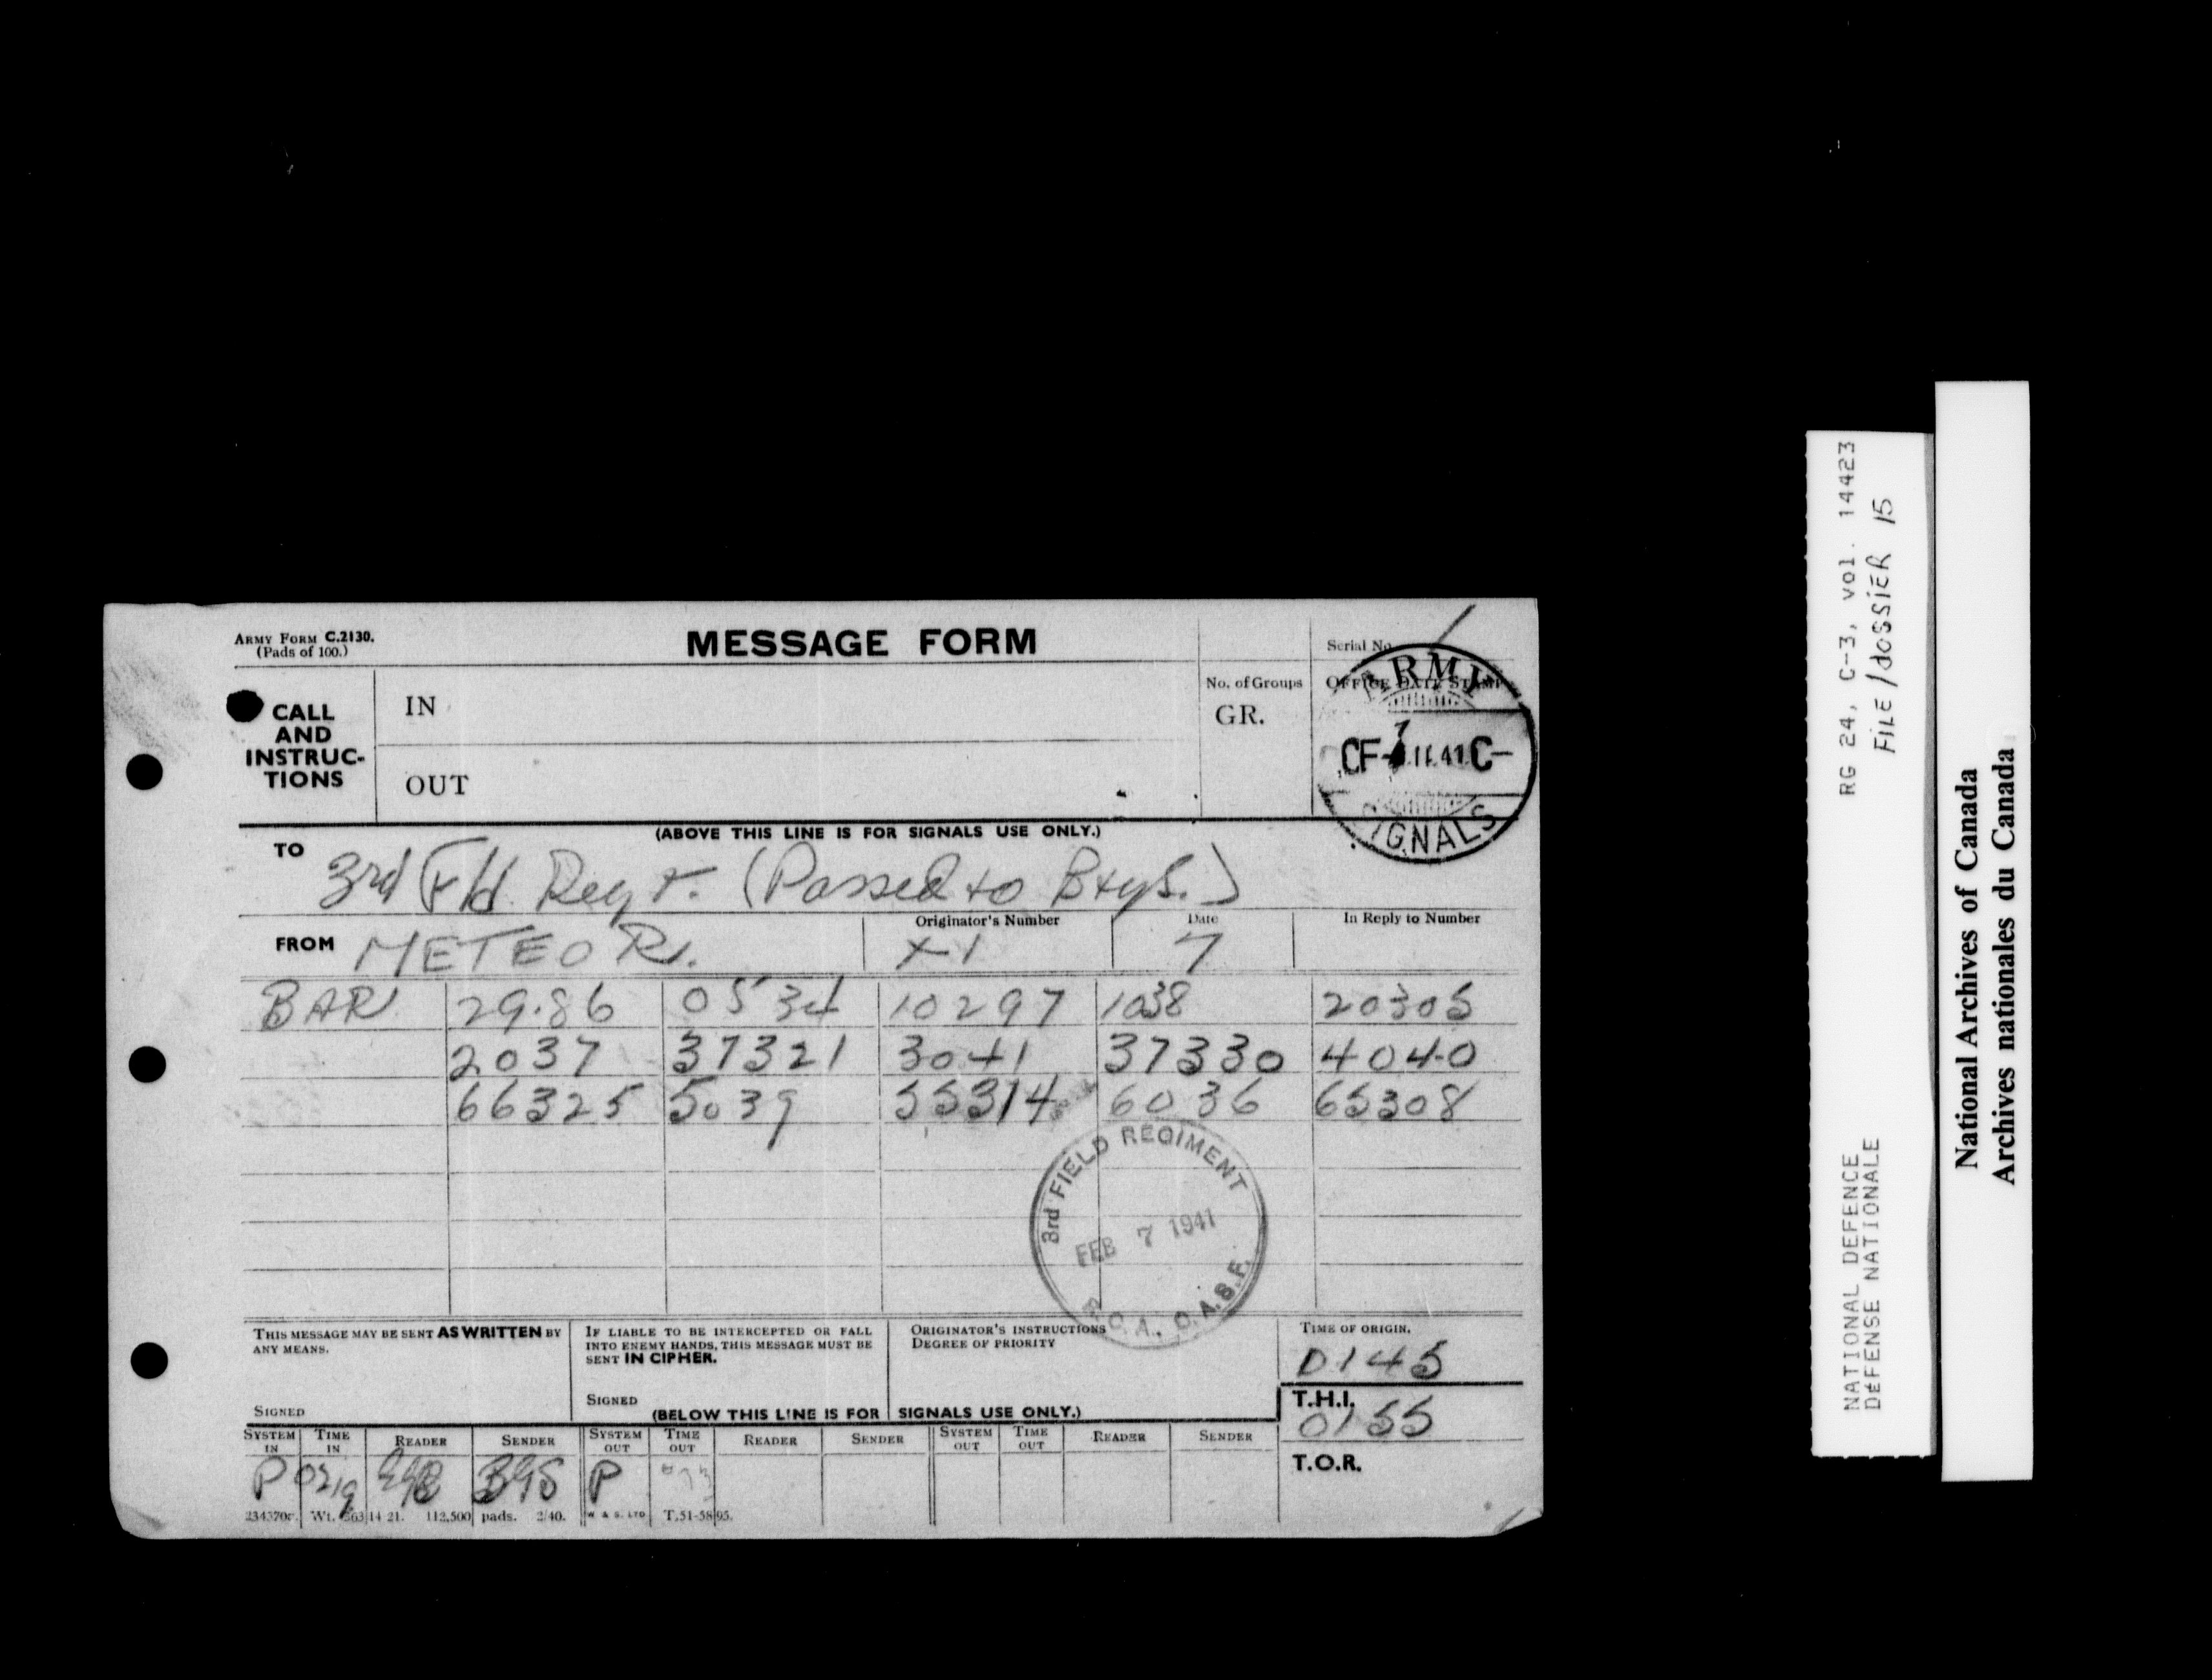 ARMY FORM C.2130.
(Pads of 100.)
MESSAGE FORM
Serial No.
CALL AND INSTRUC-TIONS
IN
OUT
No. of Groups
GR.
OFFICE DATE STAMP
ARMY
CF-7.II.41 C-
SIGNALS
(ABOVE THIS LINE IS FOR SIGNALS USE ONLY.)
TO 3rd Fld. Regt. (Passed to Btys.)
FROM METEOR.
Originator's Number
X1
Date
7
In Reply to Number
BAR 29.86 0534 10297 1038 20305
2037 37321 3041 37330 4040
66325 5039 55314 6036 65308
3rd FIELD REGIMENT
FEB 7 1941
R.C.A. C.A.S.F.
THIS MESSAGE MAY BE SENT AS WRITTEN BY
ANY MEANS.
SIGNED
IF LIABLE TO BE INTERCEPTED OR FALL
INTO ENEMY HANDS, THIS MESSAGE MUST BE
SENT IN CIPHER.
SIGNED
ORIGINATOR'S INSTRUCTIONS
DEGREE OF PRIORITY
TIME OF ORIGIN.
0145
T.H.I.
0155
T.O.R.
(BELOW THIS LINE IS FOR SIGNALS USE ONLY.)
SYSTEM IN TIME IN READER SENDER SYSTEM OUT TIME OUT READER SENDER SYSTEM OUT TIME OUT READER SENDER
P 0219 P
Wt. 14 21. 112,500 pads. 2/40. W & S. LTD T.51-5895.
RG 24, C-3, vol. 14423
FILE/dossier 15
NATIONAL DEFENCE
DEFENSE NATIONALE
National Archives of Canada
Archives nationales du Canada